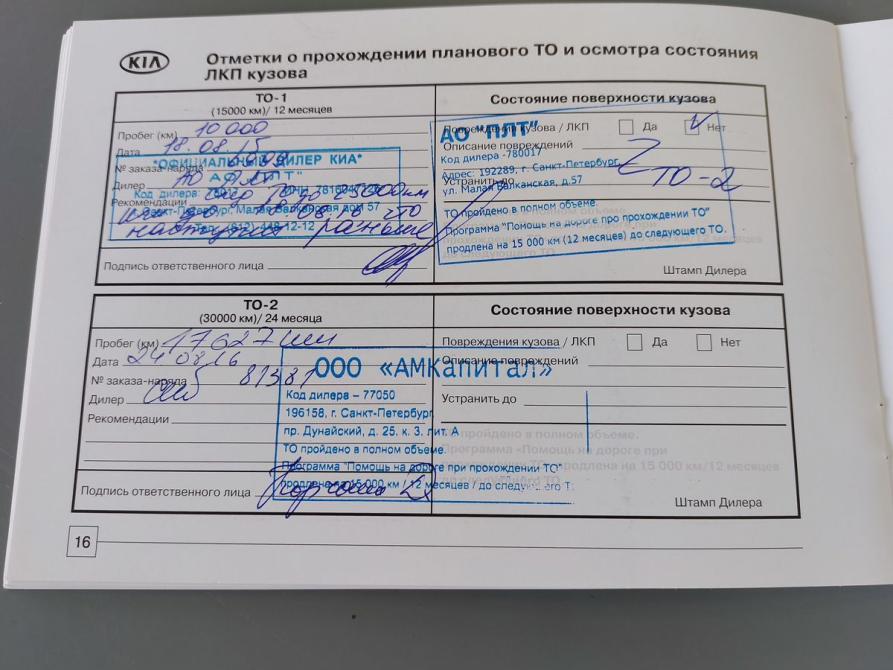 KIA
Отметки о прохождении планового ТО и осмотра состояния
ЛКП кузова
ТО-1
(15000 км)/ 12 месяцев
Пробег (км) 10 000
Дата 18.08.15
№ заказа-наряда
Дилер
Рекомендации
"ОФИЦИАЛЬНЫЙ ДИЛЕР КИА"
АО "ПЛТ"
Код дилера:
Санкт-Петербург, Малая Балканская дом 57
наступит раньше
Подпись ответственного лица
Состояние поверхности кузова
Повреждения кузова / ЛКП Да Нет
Описание повреждений
Устранить до
АО "ПЛТ"
Код дилера -780017
Адрес: 192289, г. Санкт-Петербург,
ул. Малая Балканская, д.57
ТО пройдено в полном объеме.
Программа "Помощь на дороге при прохождении ТО"
продлена на 15 000 км (12 месяцев) до следующего ТО.
ТО-2
Штамп Дилера
ТО-2
(30000 км)/ 24 месяца
Пробег (км) 17627
Дата 24 08 16
№ заказа-наряда
Дилер
Рекомендации
Подпись ответственного лица
Состояние поверхности кузова
Повреждения кузова / ЛКП Да Нет
Описание повреждений
Устранить до
ООО «АМКапитал»
Код дилера – 77050
196158, г. Санкт-Петербург
пр. Дунайский, д. 25, к. 3, лит. А
ТО пройдено в полном объеме.
Программа "Помощь на дороге при прохождении ТО"
продлена на 15 000 км / 12 месяцев / до следующего Т
Штамп Дилера
16